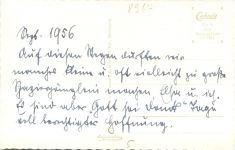 Sept. 1956
Auf diesen Wegen durften wir
manches kleine u. oft vielleicht zu große
Spaziergänglein machen Elsa u. ich.
Es sind aber Gott sei Dank Tage
voll berechtigter Hoffnung.